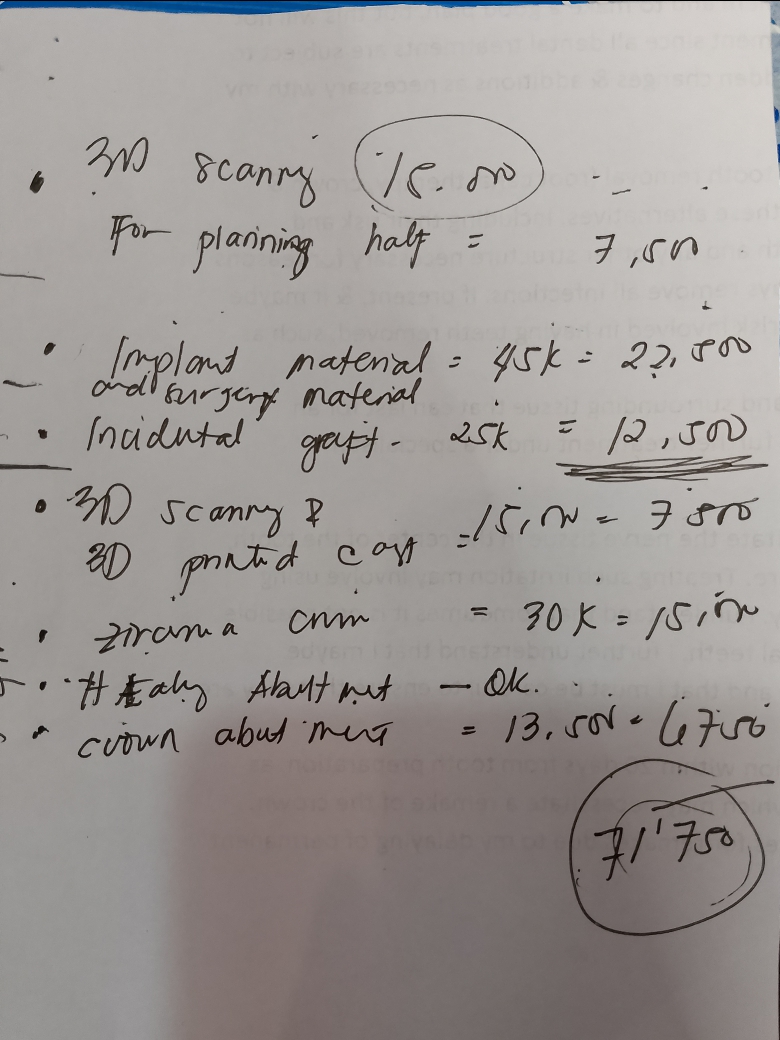 • 3D scanny 15.000 -
For planning half = 7,500
• Implant material = 45K = 22,500
and surgery material
• Incidental graft - 25K = 12,500
• 3D scanny &
3D printed cast = 15,000 = 7500
• zirconia crown = 30K = 15,000
• Healing Abutment - Ok.
• crown abutment = 13,500 = 6750
71'750